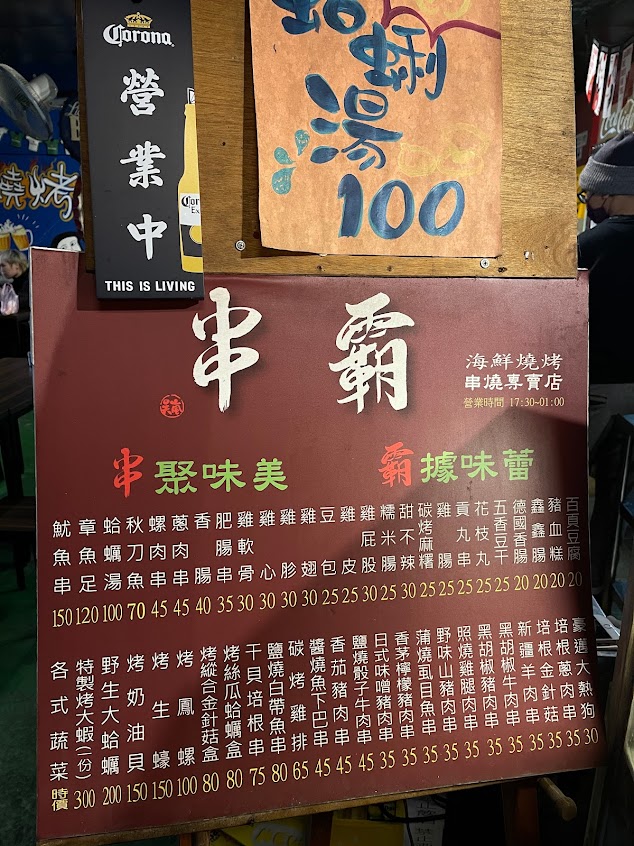 Corona
營業中
Corona
THIS IS LIVING
蛤蜊
湯
100
燒烤
串霸
海鮮燒烤
串燒專賣店
營業時間 17:30~01:00
串聚味美 霸據味蕾
魷魚串
章魚足
蛤蠣湯
秋刀魚
螺肉串
蔥肉串
香腸
肥腸串
雞軟骨
雞心
雞胗
雞翅
豆包
雞皮
雞屁股
糯米腸
甜不辣
碳烤麻糬
雞腸
貢丸串
花枝丸
五香豆干
德國香腸
鑫鑫腸
豬血糕
百頁豆腐
150 120 100 70 45 45 40 35 30 30 30 30 25 25 30 25 30 25 25 25 25 25 20 20 20 20
各式蔬菜
特製烤大蝦(一份)
野生大蛤蠣
烤奶油貝
烤生蠔
烤鳳螺
烤縱合金針菇盒
烤絲瓜蛤蠣盒
干貝培根串
鹽燒白帶魚串
碳烤雞排
醬燒魚下巴串
香茄豬肉串
鹽燒骰子牛肉串
日式味噌豬肉串
香茅檸檬豬肉串
蒲燒虱目魚串
野味山豬肉串
照燒雞腿肉串
黑胡椒豬肉串
黑胡椒牛肉串
新疆羊肉串
培根金針菇
培根蔥肉串
豪邁大熱狗
時價 300 200 150 150 100 80 80 75 80 65 45 45 45 35 35 35 35 35 35 35 35 35 35 30